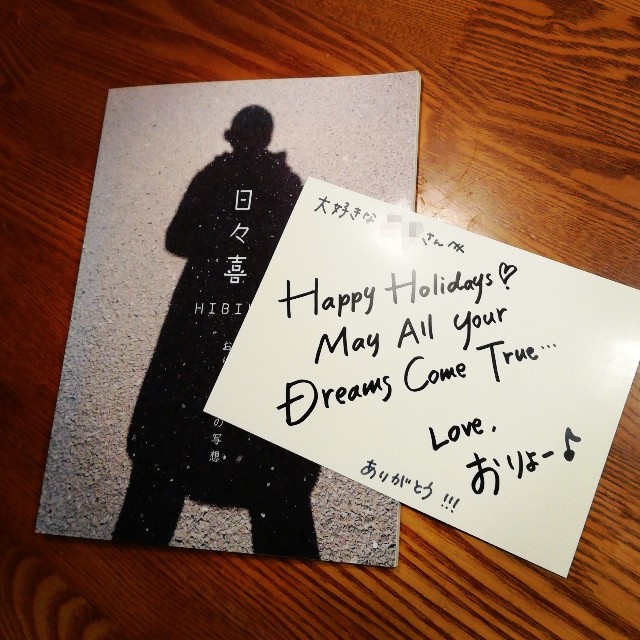 日々喜
HIBI
お
の写想
大好きな
さんへ
Happy Holidays♡
May All Your
Dreams Come True...
Love,
おりょー♪
ありがとう!!!